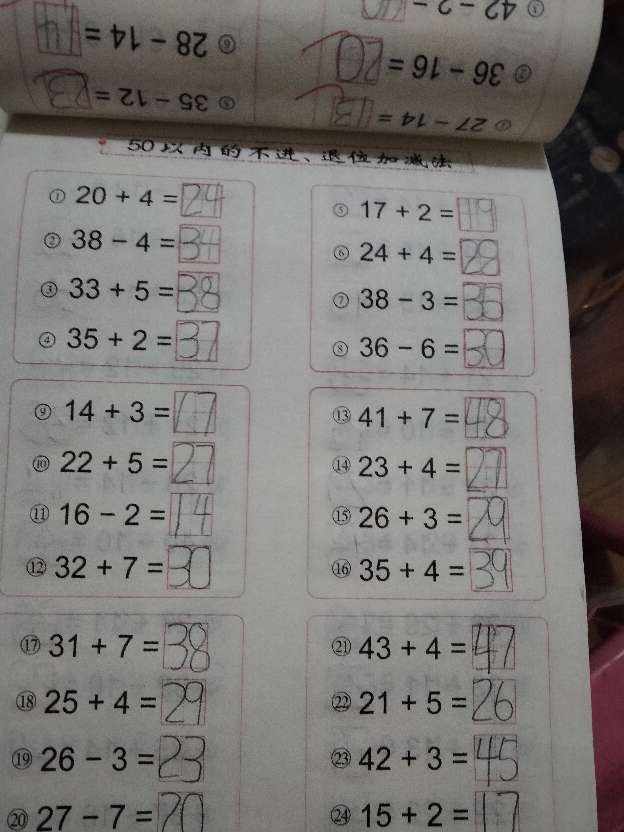 28 − 14 = 14
36 − 16 = 20
35 − 12 = 23
① 27 − 14 = 13
50以内的不进、退位加减法
① 20 + 4 = 24
② 38 − 4 = 34
③ 33 + 5 = 38
④ 35 + 2 = 37
⑤ 17 + 2 = 19
⑥ 24 + 4 = 28
⑦ 38 − 3 = 36
⑧ 36 − 6 = 30
⑨ 14 + 3 = 17
⑩ 22 + 5 = 27
⑪ 16 − 2 = 14
⑫ 32 + 7 = 30
⑬ 41 + 7 = 48
⑭ 23 + 4 = 27
⑮ 26 + 3 = 29
⑯ 35 + 4 = 39
⑰ 31 + 7 = 38
⑱ 25 + 4 = 29
⑲ 26 − 3 = 23
⑳ 27 − 7 = 20
㉑ 43 + 4 = 47
㉒ 21 + 5 = 26
㉓ 42 + 3 = 45
㉔ 15 + 2 = 17